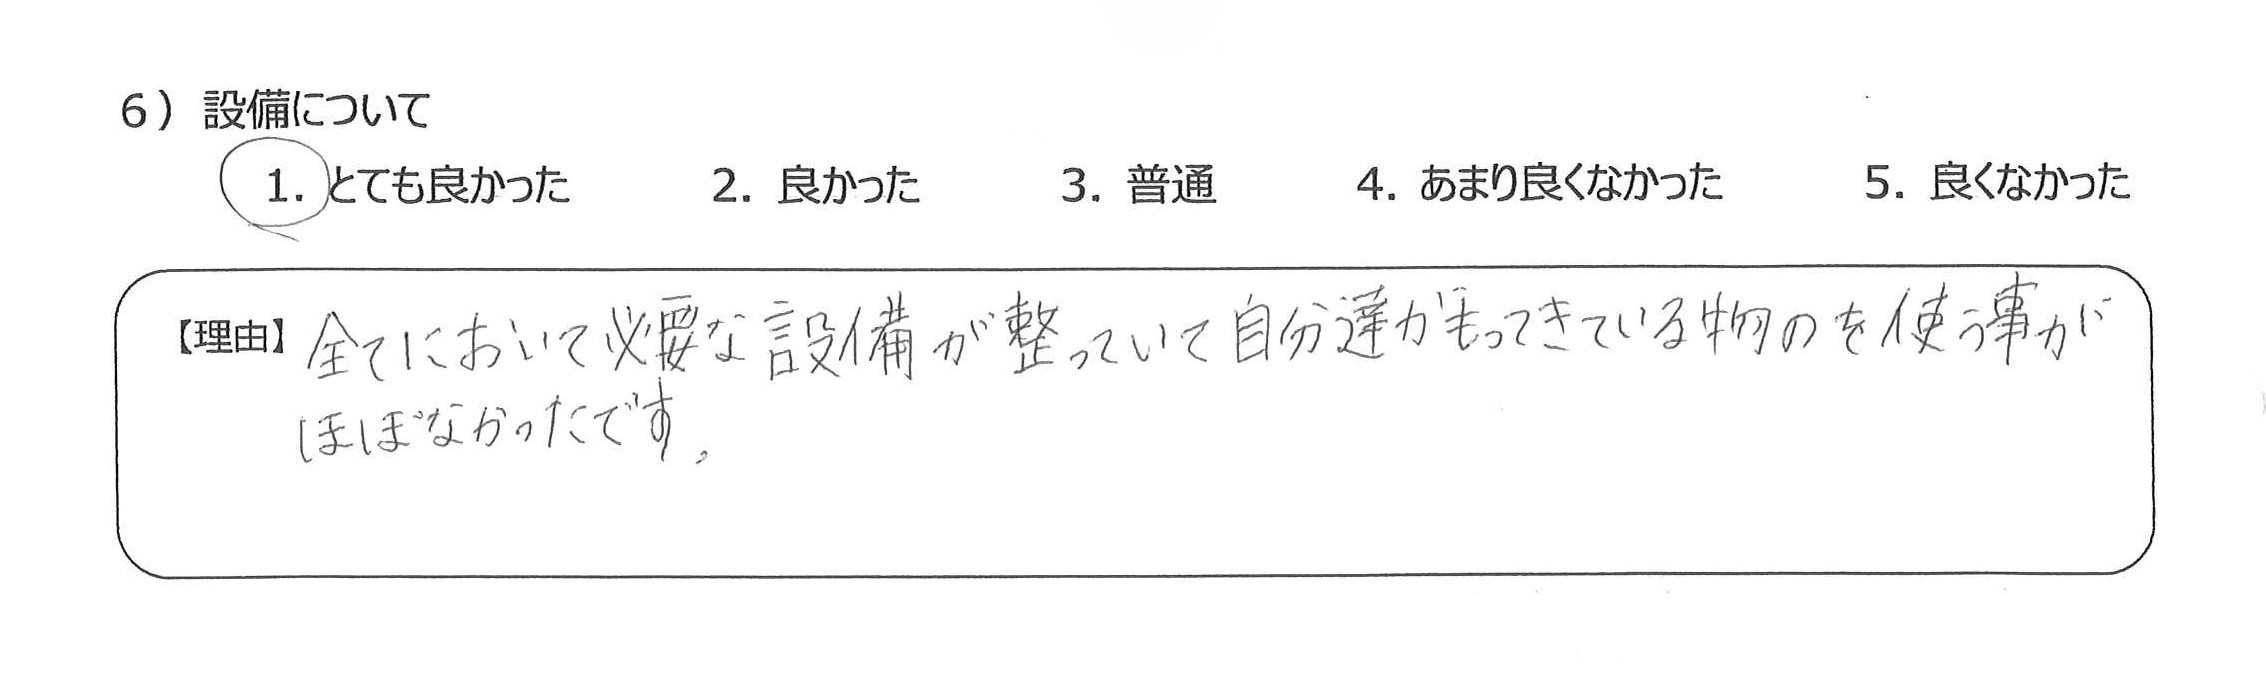 6）設備について
1. とても良かった 2. 良かった 3. 普通 4. あまり良くなかった 5. 良くなかった
【理由】全てにおいて必要な設備が整っていて自分達がもってきている物のを使う事が
ほぼなかったです。